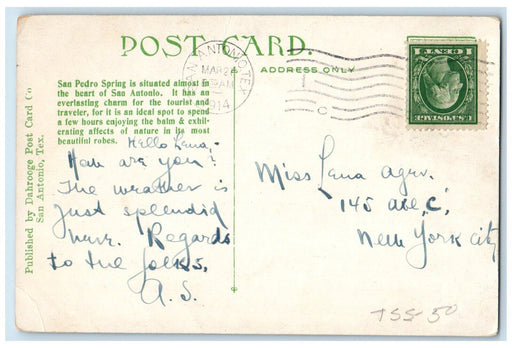 POST CARD.
ADDRESS ONLY
San Pedro Spring is situated almost in
the heart of San Antonio. It has an
everlasting charm for the tourist and
traveler, for it is an ideal spot to spend
a few hours enjoying the balm & exhil-
erating affects of nature in its most
beautiful robes.
Hello Lena,-
How are you?
The weather is
just splendid
here. Regards
to the folks,
A.S.
Published by Dahrooge Post Card Co
San Antonio, Tex.
SAN ANTONIO, TEX.
MAR 2
AM
1914
C
U.S. POSTAGE
1 CENT 1
Miss Lena Ager.
145 Ave. C,
New York City
TSS 50